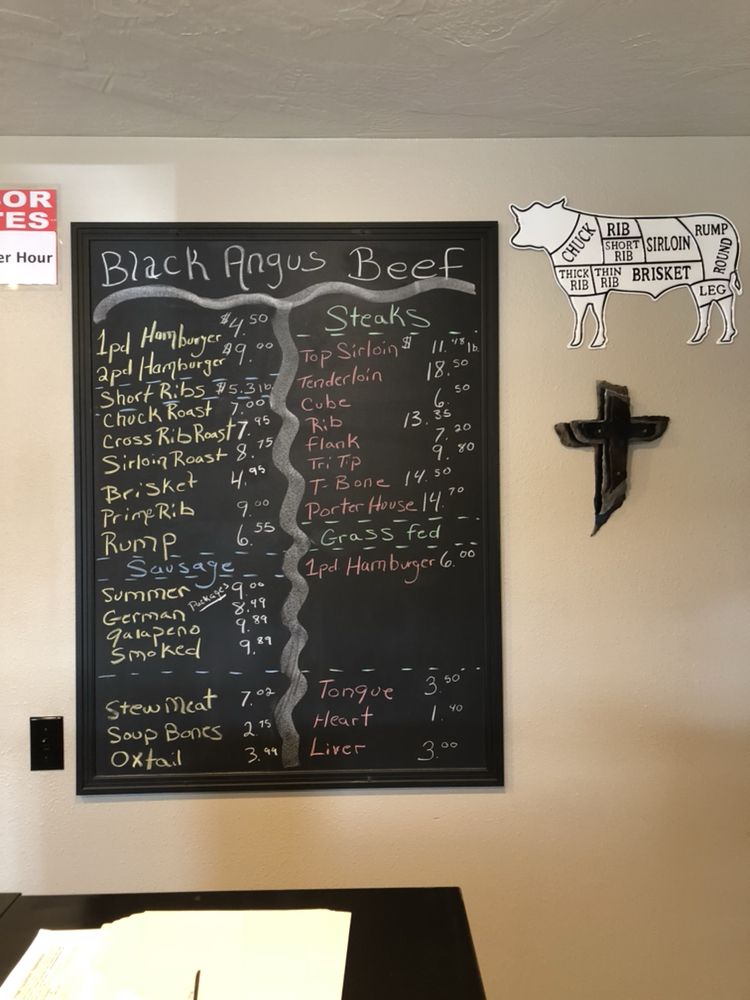 OR
TES
er Hour
Black Angus Beef
1pd Hamburger $4.50
2pd Hamburger $9.00
Short Ribs $5.31b
Chuck Roast 7.00
Cross Rib Roast 7.95
Sirloin Roast 8.75
Brisket 4.95
Prime Rib 9.00
Rump 6.55
Sausage
Summer Packages 9.00
German 8.49
Jalapeno 9.89
Smoked 9.89
Stew Meat 7.02
Soup Bones 2.75
Oxtail 3.99
Steaks
Top Sirloin $ 11.48 lb
Tenderloin 18.50
Cube 6.50
Rib 13.35
Flank 7.20
Tri Tip 9.80
T-Bone 14.50
Porter House 14.70
Grass fed
1pd Hamburger 6.00
Tongue 3.50
Heart 1.40
Liver 3.00
CHUCK
RIB
SHORT RIB
SIRLOIN
RUMP
ROUND
THICK RIB
THIN RIB
BRISKET
LEG